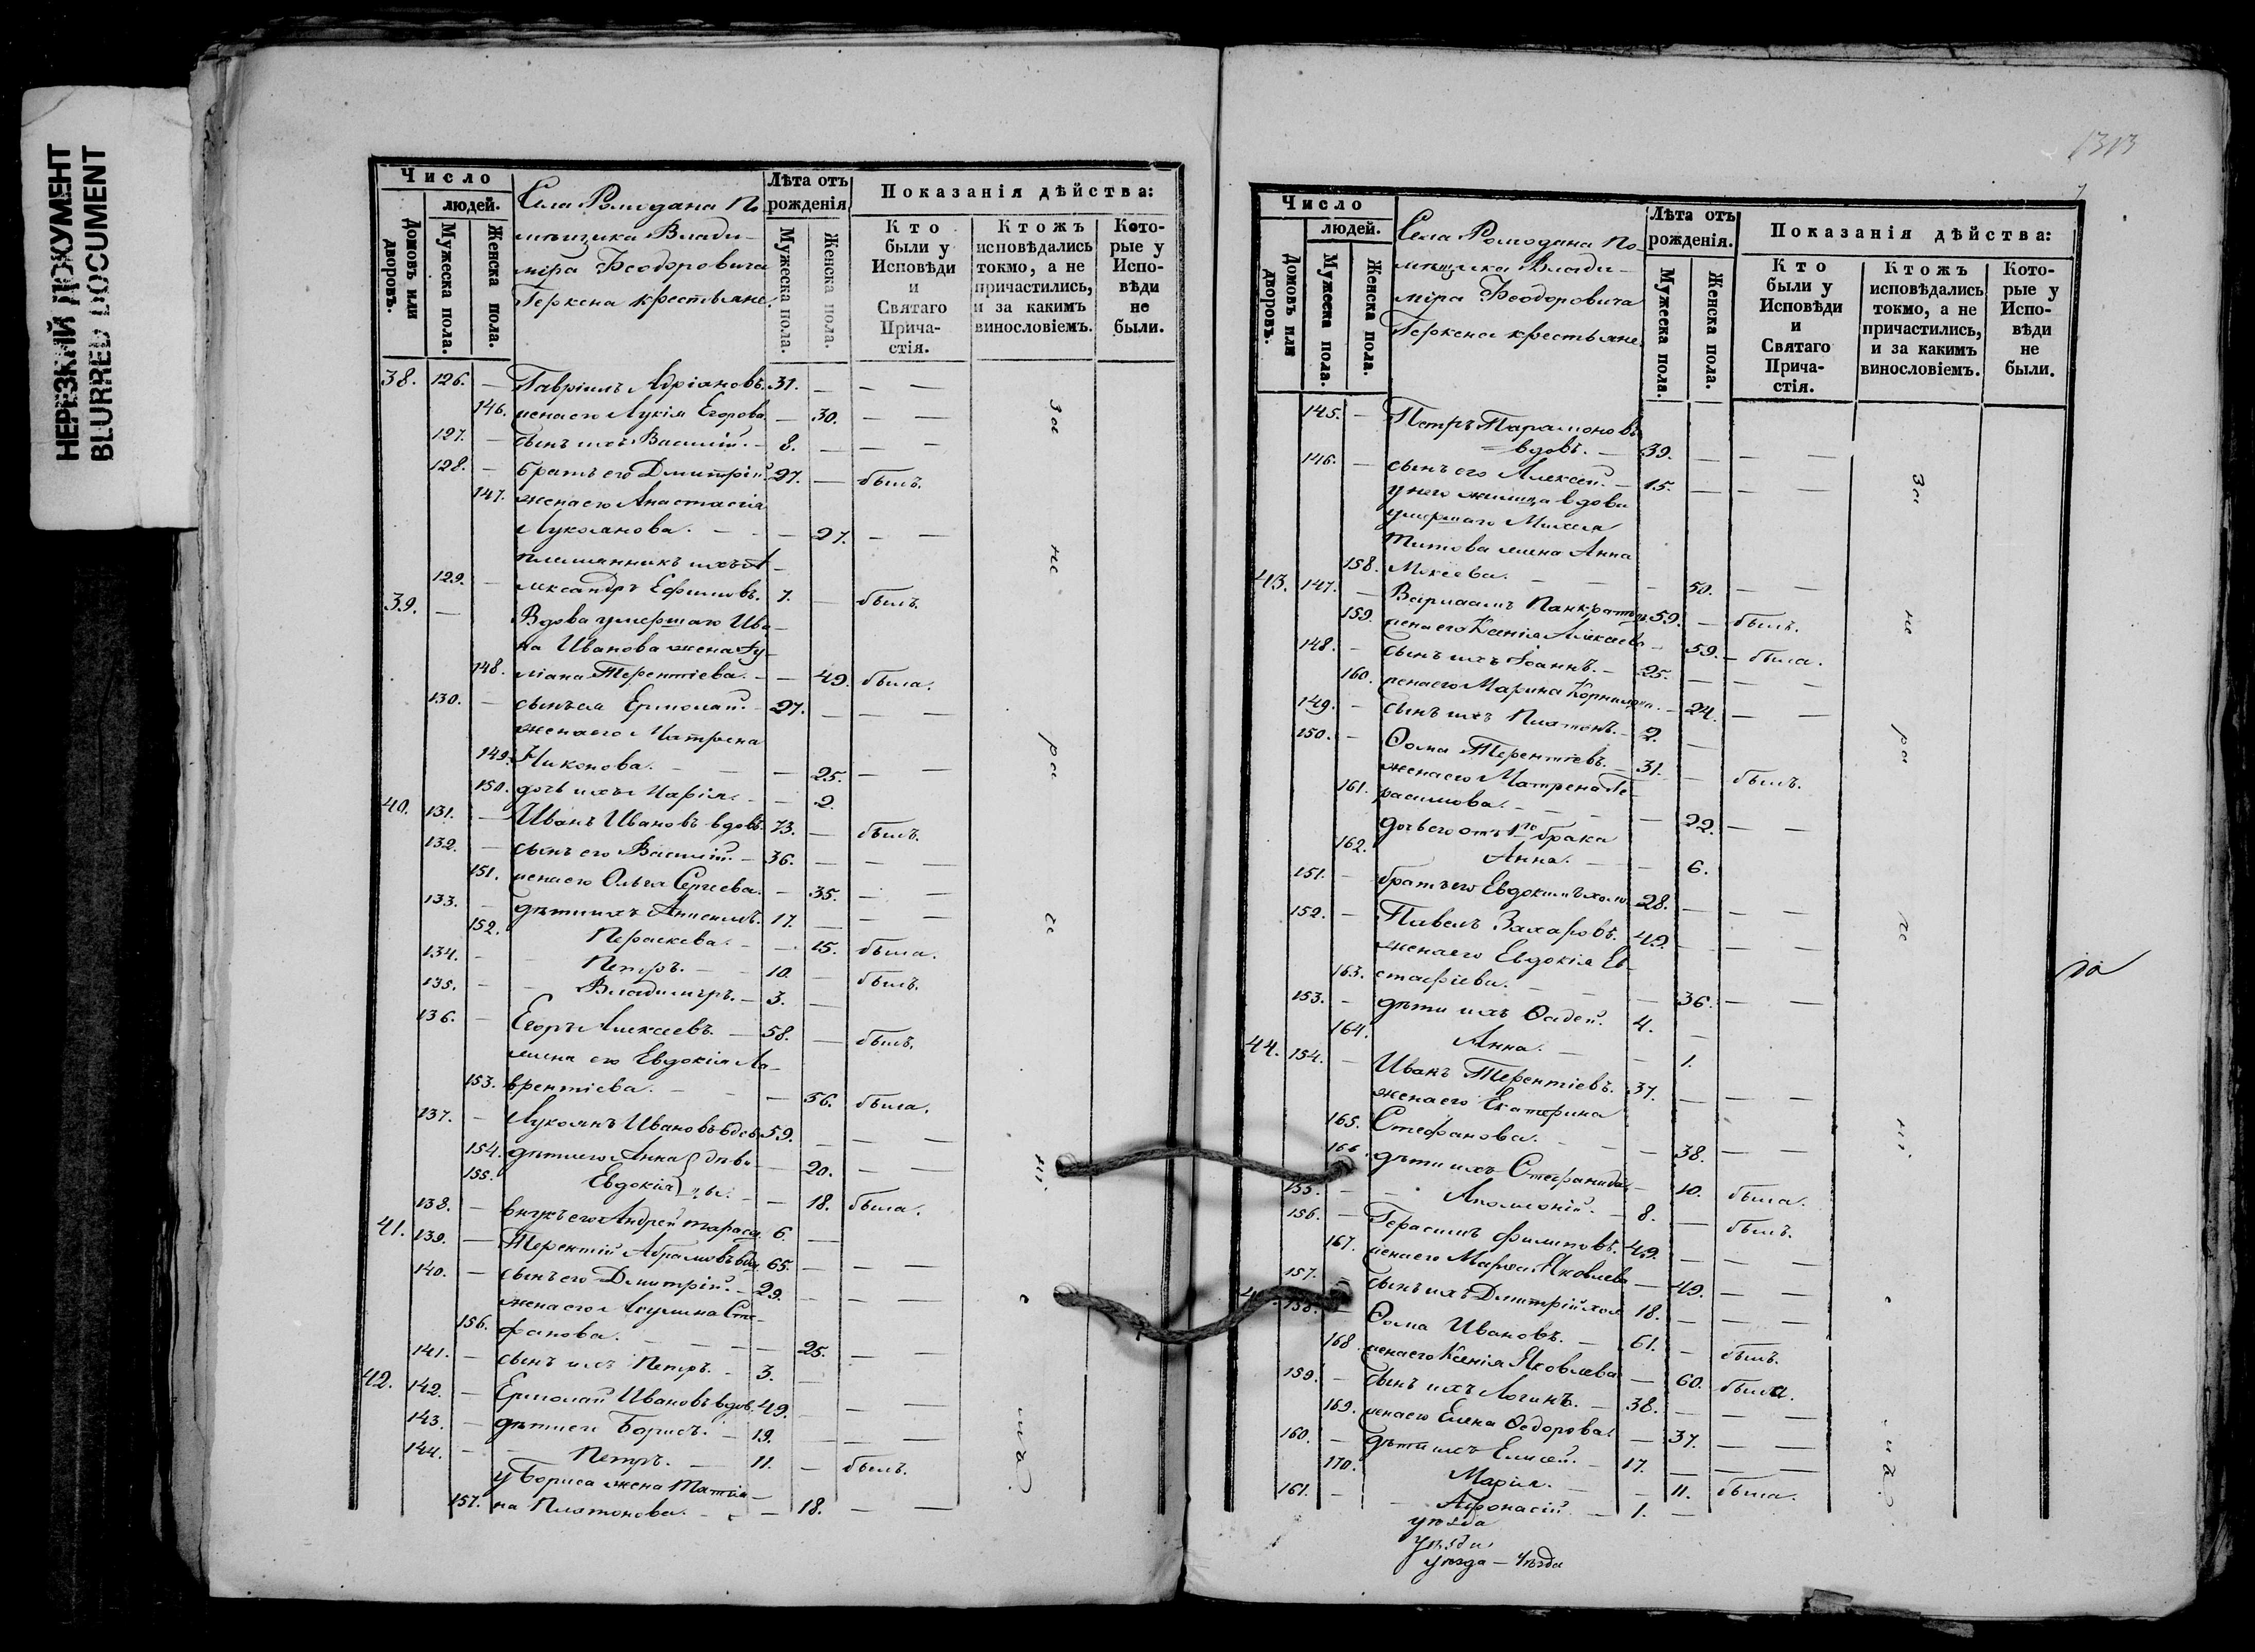 НЕРЕЗКИЙ ДОКУМЕНТ
BLURRED DOCUMENT
Число
людей.
Домовъ или дворовъ.
Мужеска пола.
Женска пола.
Села Ромодана По
мѣщика Влади-
міра Ѳеодоровича
Геркена крестьяне.
Лѣта отъ рожденія
Мужеска пола.
Женска пола.
Показанія дѣйства:
Кто были у Исповѣди и Святаго Прича-стія.
Ктожъ исповѣдались токмо, а не причастились, и за какимъ винословіемъ.
Кото-рые у Испо-вѣди не были.
38. 126. — Гавріилъ Адріановъ. 31. — — —
146. жена его Лукія Егорова — 30. — —
127. — сынъ ихъ Василій. — 8. — — —
128. — братъ его Дмитрій. 27. — былъ.
147. жена его Анастасія
Лукоянова. — — — 27. — —
племянникъ ихъ А-
129. — лександръ Ефимовъ. 7. — былъ.
39. — Вдова умершаго Ива-
на Иванова жена Іу-
148. ліана Терентіева. — — 49. была.
130. — сынъ ея Ермолай. — 27. — — —
жена его Матрена
149. Никонова. — — — 25. — —
150. дочь ихъ Марія. — — 2.
40. 131. — Иванъ Ивановъ вдовъ. 73. — былъ.
132. — сынъ его Василій. — 36. — — —
151. жена его Ольга Сергеева. — 35. — —
133. — дѣти ихъ Анисимъ. 17. — — —
152. Пераскева. — — 15. была.
134. — — Петръ. — 10. — былъ.
135. — — Владимиръ. — 3. —
136. — Егоръ Алексеевъ. — 58. — былъ.
жена его Евдокія Ла-
153. врентіева. — — — 56. была.
137. — Лукоянъ Ивановъ вдов. 59. — — —
154. дѣти его Анна } дѣви — 20. — —
155. Евдокія } цы. — — 18. была.
138. — внукъ его Андрей Тарасов. 6. —
41. 139. — Терентій Абрамовъ вдов. 65. — — —
140. — сынъ его Дмитрій. — 29. — — —
жена его Акулина Сте-
156. фанова. — — — 25. — —
141. — сынъ ихъ Петръ. — 3. —
42. 142. — Ермолай Ивановъ вдов. 49. — — —
143. — дѣти его Борисъ. — 19. — — —
144. — — Петръ. — 11. — былъ.
у Бориса жена Татія-
157. на Платонова. — — — 18. — —
за
не
ра
че
ні
1313
Число
людей.
Домовъ или дворовъ.
Мужеска пола.
Женска пола.
Села Ромодана По
мѣщика Влади-
міра Ѳеодоровича
Геркена крестьяне.
Лѣта отъ рожденія.
Мужеска пола.
Женска пола.
Показанія дѣйства:
Кто были у Исповѣди и Святаго Прича-стія.
Ктожъ исповѣдались токмо, а не причастились, и за какимъ винословіемъ.
Кото-рые у Испо-вѣди не были.
145. — Петръ Парамоновъ
вдовъ. — 39. — — —
146. — сынъ его Алексей. — 15. — — —
у него вдова
умершаго
Титова жена Анна
158. Мокеева. — — — 50. — —
43. 147. — Варлаамъ Панкратов. 59. — былъ.
159. жена его Ксенія — 59. — была.
148. — сынъ ихъ Іоаннъ. — 25. — — —
160. жена его Марина Корнилова. — 24. — —
149. — сынъ ихъ Платонъ. — 2. —
150. — Ѳома Терентіевъ. — 31. — былъ.
жена его Матрена Ге-
161. расимова. — — — 22. — —
дочь его отъ 1го брака
162. Анна. — — 6.
151. — братъ его Евдокимъ холос. 28. — — —
152. — Павелъ Захаровъ. 49. — — —
жена его Евдокія Ев-
163. стафіева. — — — 36. — —
153. — дѣти ихъ Ѳадей. 4. —
164. Анна. — — 1.
44. 154. — Иванъ Терентіевъ. 37. — — —
жена его Екатерина
165. Стефанова. — — — 38. — —
166. дѣти ихъ Стефанида. — 10. была.
155. — — Аполлоній. — 8. — былъ.
156. — Герасимъ Филиповъ. 49. — — —
167. жена его Марѳа Яковлева — 49. — —
157. — сынъ ихъ Дмитрій хол. 18. — — —
158. — Ѳома Ивановъ. — 61. — былъ.
168. жена его Ксенія Яковлева — 60. была.
159. — сынъ ихъ Логинъ. — 38. — — —
169. жена его Елена Ѳедорова. — 37. — —
160. — дѣти ихъ Елисей. — 17. — — —
170. Марія. — — 11. была.
161. — — Афонасій. — 1. —
за
не
ра
че
ні
уѣзда
уѣзда
уѣзда — Уѣзда